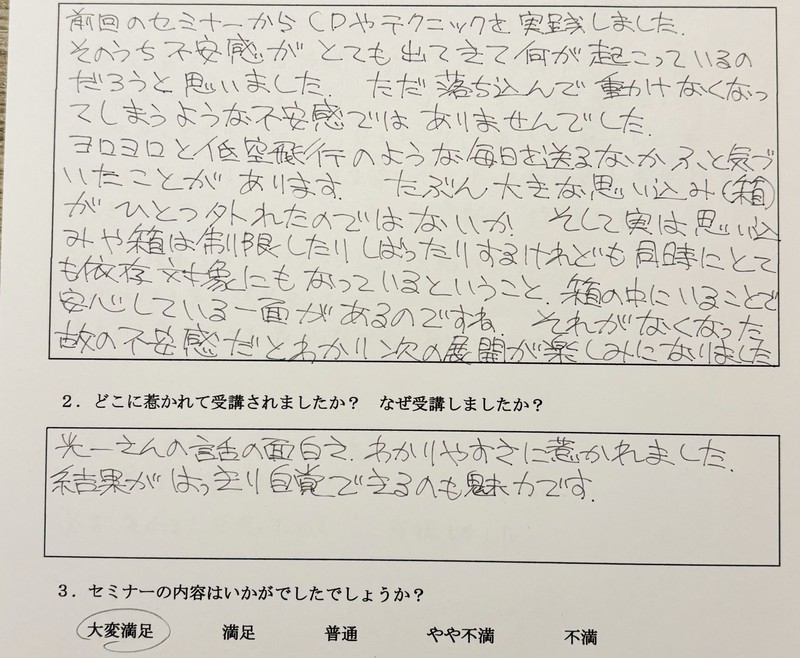 前回のセミナーからCDやテクニックを実践しました.
そのうち不安感がとても出てきて何が起こっているの
だろうと思いました. ただ落ち込んで動けなくなっ
てしまうような不安感ではありませんでした.
ヨロヨロと低空飛行のような毎日を送るなか ふと気づ
いたことがあります. たぶん大きな思い込み(箱)
がひとつ外れたのではないか! そして実は思い込
みや箱は制限したりしばったりするけれども同時にとて
も依存対象にもなっているということ. 箱の中にいることで
安心している一面があるのですね. それがなくなった
故の不安感だとわかり次の展開が楽しみになりました
2．どこに惹かれて受講されましたか？　なぜ受講しましたか？
光一さんの話の面白さ. わかりやすさに惹かれました.
結果がはっきり自覚できるのも魅力です.
3．セミナーの内容はいかがでしたでしょうか？
大変満足　満足　普通　やや不満　不満